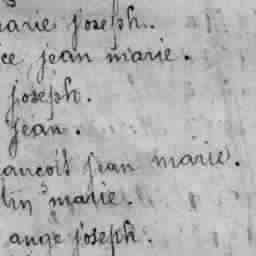 marie joseph.
ce jean marie.
joseph.
jean.
ancoit jean marie.
lin marie.
ange joseph.